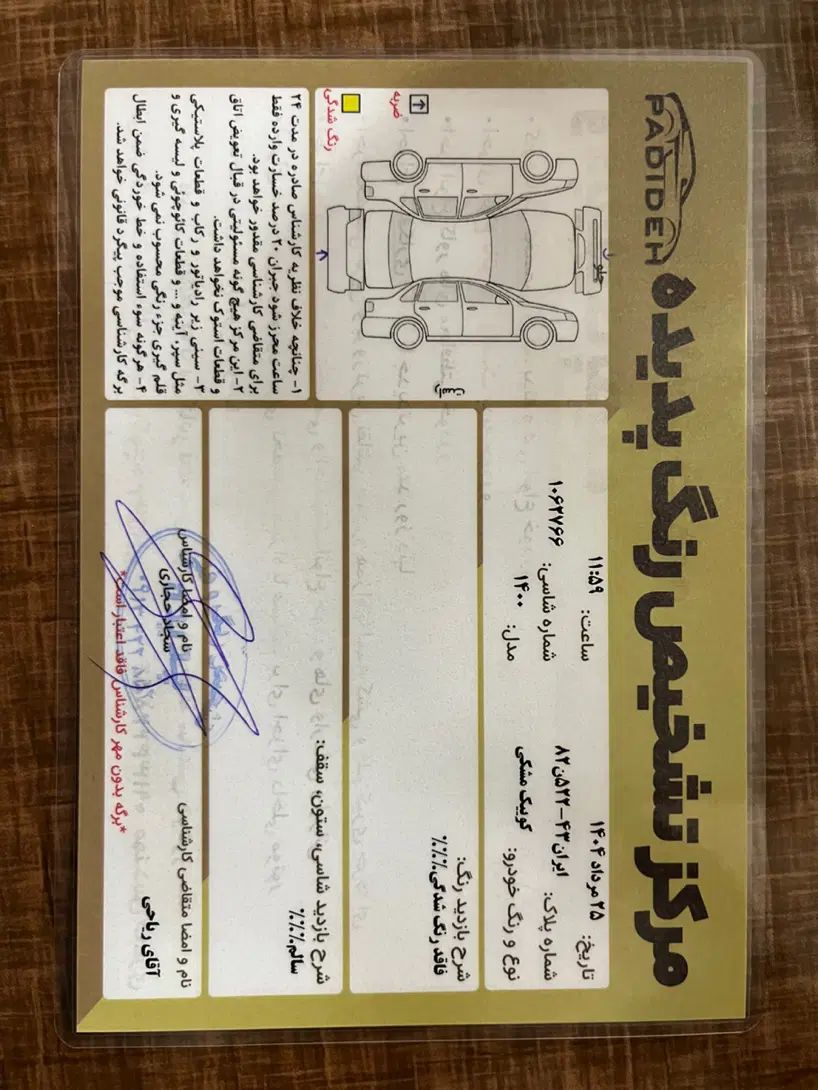 PADIDEH
مرکز تشخیص رنگ پدیده
تاریخ: ۲۵ مرداد ۱۴۰۴
ساعت: ۱۱:۵۹
شماره پلاک: ایران۴۳-۵۲۲ن۸۲
شماره شاسی: ۱۰۶۲۷۶۶
نوع و رنگ خودرو: کوییک مشکی
مدل: ۱۴۰۰
شرح بازدید رنگ:
فاقد رنگ شدگی٪٪٪
شرح بازدید شاسی، ستون، سقف:
سالم٪٪٪
نام و امضا متقاضی کارشناسی
آقای ریاحی
نام و امضا کارشناس
سجاد حجاری
*برگه بدون مهر کارشناس فاقد اعتبار است*
جلو
ضربه
رنگ شدگی
۱- چنانچه خلاف نظریه کارشناس صادره در مدت ۲۴
ساعت محرز شود جبران ۲۰ درصد خسارت وارده فقط
برای متقاضی کارشناسی مقدور خواهد بود.
۲- این مرکز هیچ گونه مسئولیتی در قبال تعویض اتاق
و قطعات استوک نخواهد داشت.
۳- سینی زیر رادیاتور و رکاب و قطعات پلاستیکی
مثل سپر، آینه و... و قطعات کائوچوئی و لیسه گیری و
قلم گیری جزء رنگی محسوب نمی شود.
۴- هرگونه سوء استفاده و خط خوردگی ضمن ابطال
برگه کارشناسی موجب پیگرد قانونی خواهد شد.